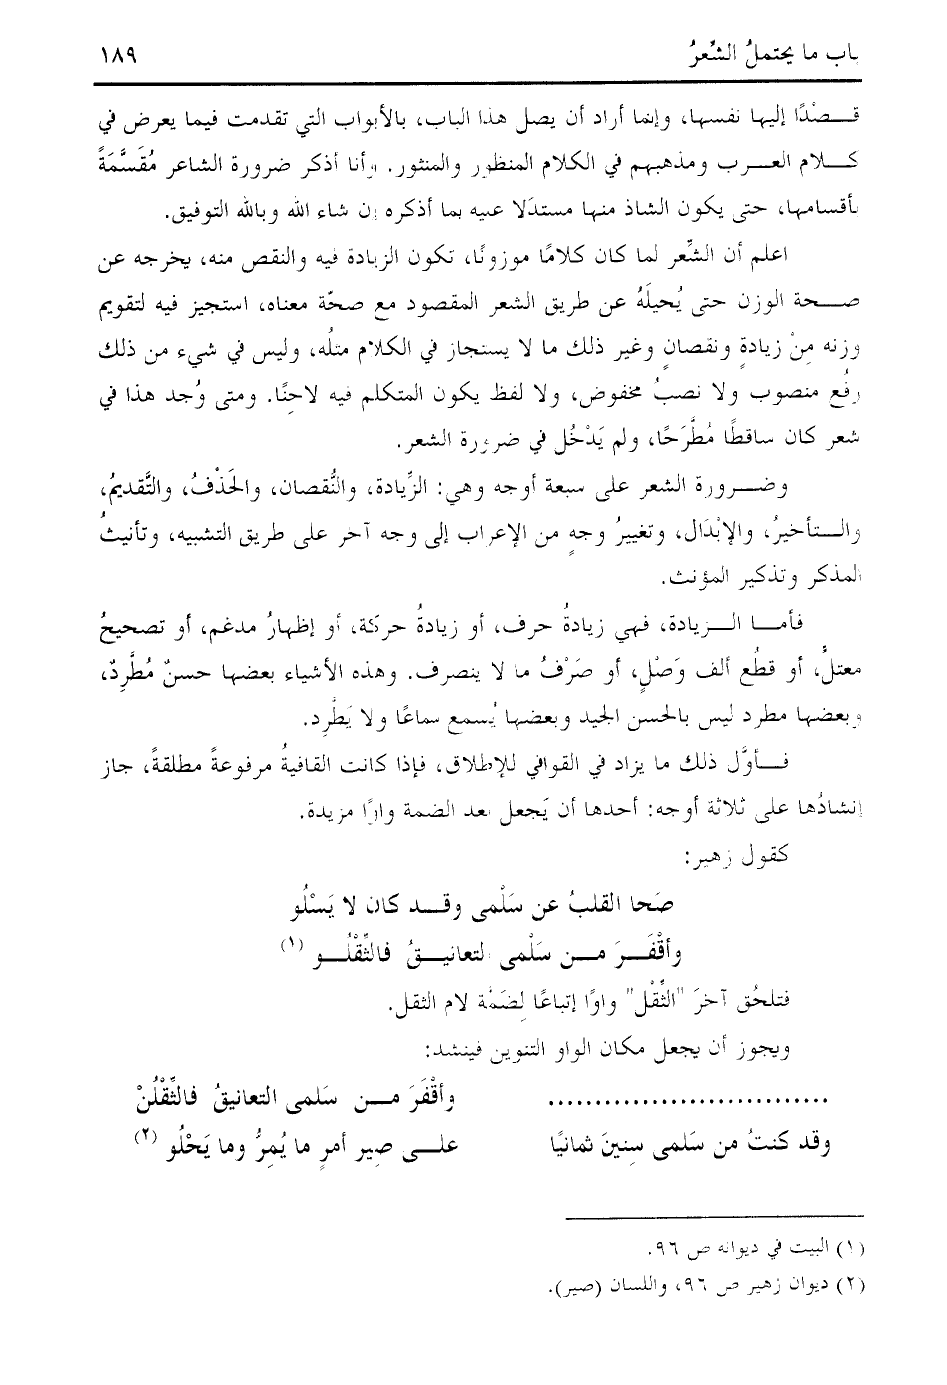 باب ما يحتملُ الشِّعرُ ١٨٩
قصْدًا إليها نفسها، وإنما أراد أن يصل هذا الباب، بالأبواب التي تقدمت فيما يعرض في
كلام العرب ومذهبهم في الكلام المنظور والمنثور. وأنا أذكر ضرورة الشاعر مُقَسَّمَةً
بأقسامها، حتى يكون الشاذ منها مستدَلا عليه بما أذكره إن شاء الله وبالله التوفيق.
اعلم أن الشِّعر لما كان كلامًا موزونًا، تكون الزيادة فيه والنقص منه، يخرجه عن
صحة الوزن حتى يُحيلَهُ عن طريق الشعر المقصود مع صحّة معناه، استجيز فيه لتقويم
وزنه مِنْ زيادةٍ ونقصانٍ وغير ذلك ما لا يستجاز في الكلام مثلُه، وليس في شيء من ذلك
رفُع منصوب ولا نصبُ مخفوض، ولا لفظ يكون المتكلم فيه لاحِنًا. ومتى وُجد هذا في
شعر كان ساقطًا مُطَّرَحًا، ولم يَدْخُل في ضرورة الشعر.
وضرورة الشعر على سبعة أوجه وهي: الزِّيادة، والنُّقصان، والحَذْفُ، والتَّقديمُ،
والتأخيرُ، والإبْدَال، وتغييرُ وجهٍ من الإعراب إلى وجه آخر على طريق التشبيه، وتأنيثُ
المذكر وتذكير المؤنث.
فأما الزيادة، فهي زيادةُ حرف، أو زيادةُ حركة، أو إظهارُ مدغم، أو تصحيحُ
معتلٍّ، أو قطُع ألف وَصْلٍ، أو صَرْفُ ما لا ينصرف. وهذه الأشياء بعضها حسنٌ مُطَّرِدٌ،
وبعضها مطرد ليس بالحسن الجيد وبعضها يُسمع سماعًا ولا يَطَّرِد.
فأوَّل ذلك ما يزاد في القوافي للإطلاق، فإذا كانت القافيةُ مرفوعةً مطلقةً، جاز
إنشادُها على ثلاثة أوجه: أحدها أن يَجعل بعد الضمة واوًا مزيدة.
كقول زهير:
صَحا القلبُ عن سَلْمى وقد كان لا يَسْلُو
وأقْفَرَ من سَلْمى التعانيقُ فالثِّقْلُو (١)
فتلحُق آخرَ "الثِّقْل" واوًا إتباعًا لِضَمَّة لام الثقل.
ويجوز أن يجعل مكان الواو التنوين فينشد:
.............................. وأقْفَرَ من سَلمى التعانيقُ فالثِّقْلُنْ
وقد كنتُ من سَلمى سِنينَ ثمانيًا على صِير أمرٍ ما يُمِرُّ وما يَحْلُو (٢)
(١) البيت في ديوانه ص ٩٦.
(٢) ديوان زهير ص ٩٦، واللسان (صير).